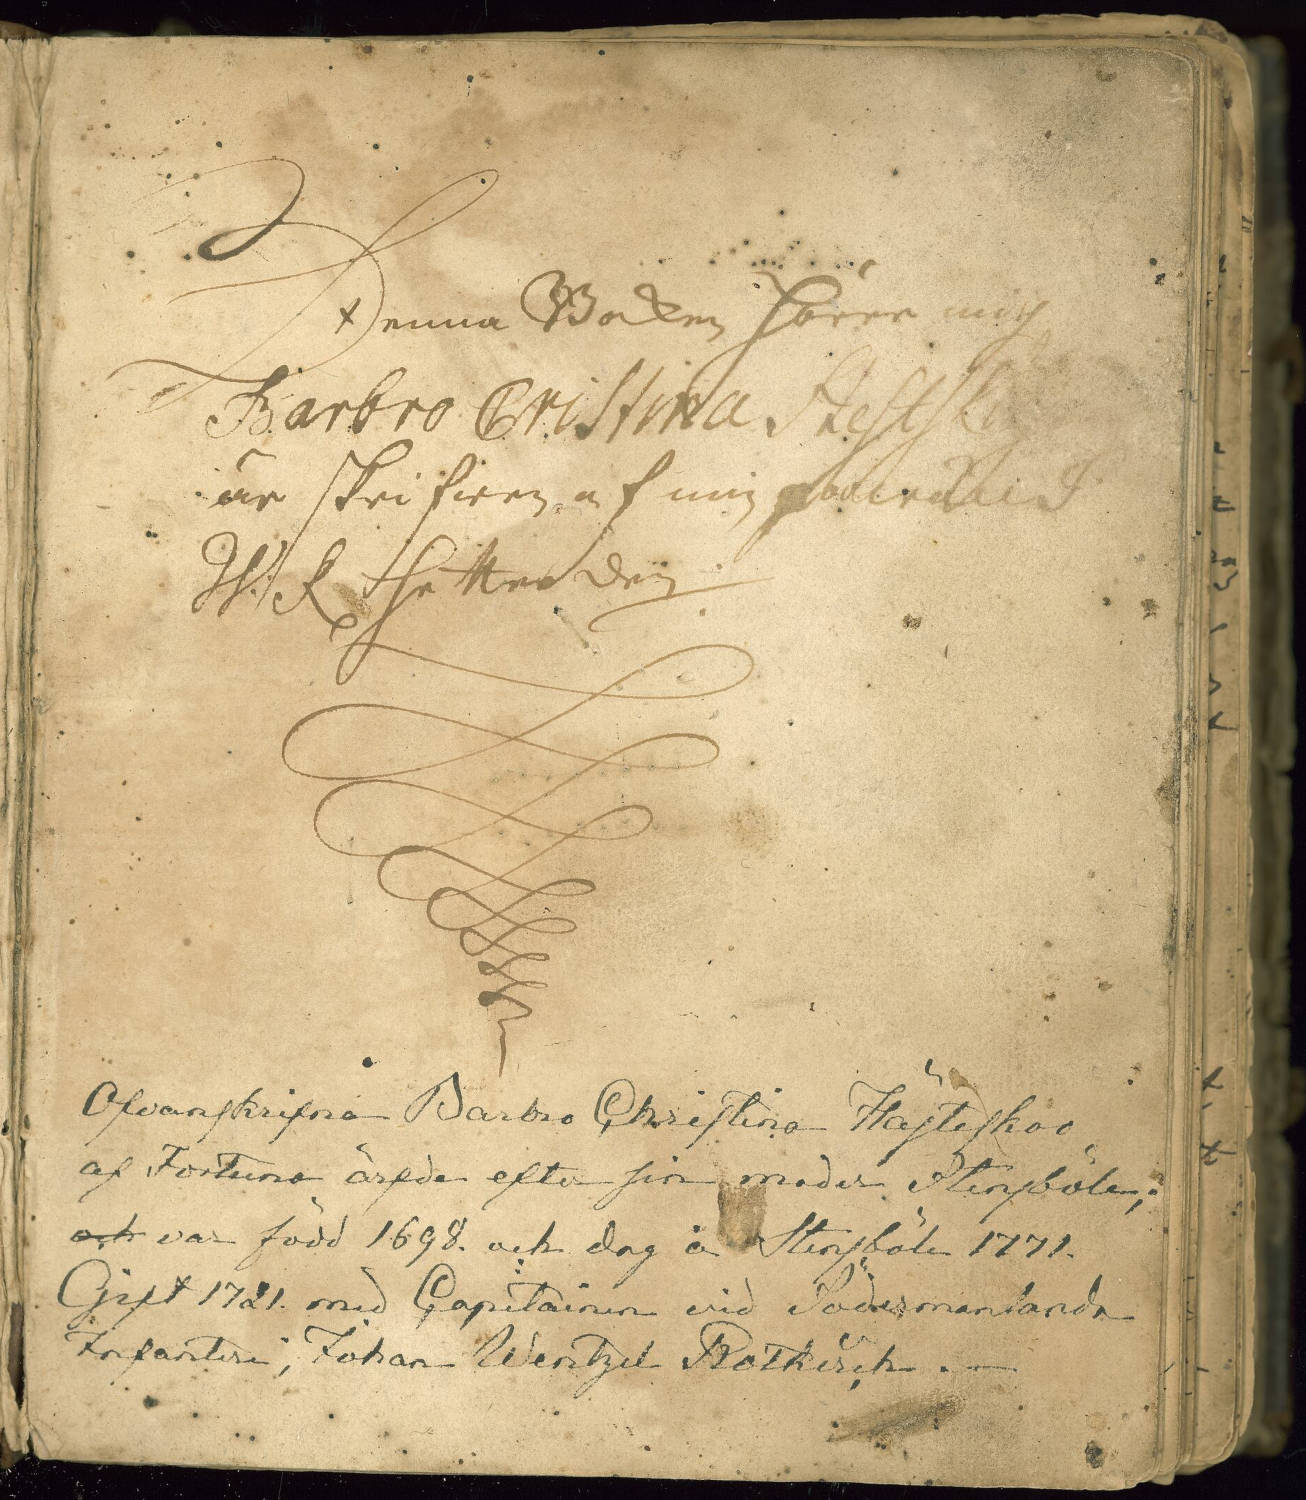 Denna Boken hörer mig
Barbro Cristina
är skrifven af min
W R
Ofvanskrifna Barbro Christina Hästeskoo
af Fortuna ärfde efter sin moder Stensböle,
och var född 1698. och dog å Stensböle 1771.
Gift 1721. med Capitainen vid Södermanlands
Infanteri, Johan Wentzel Rotkirch. —